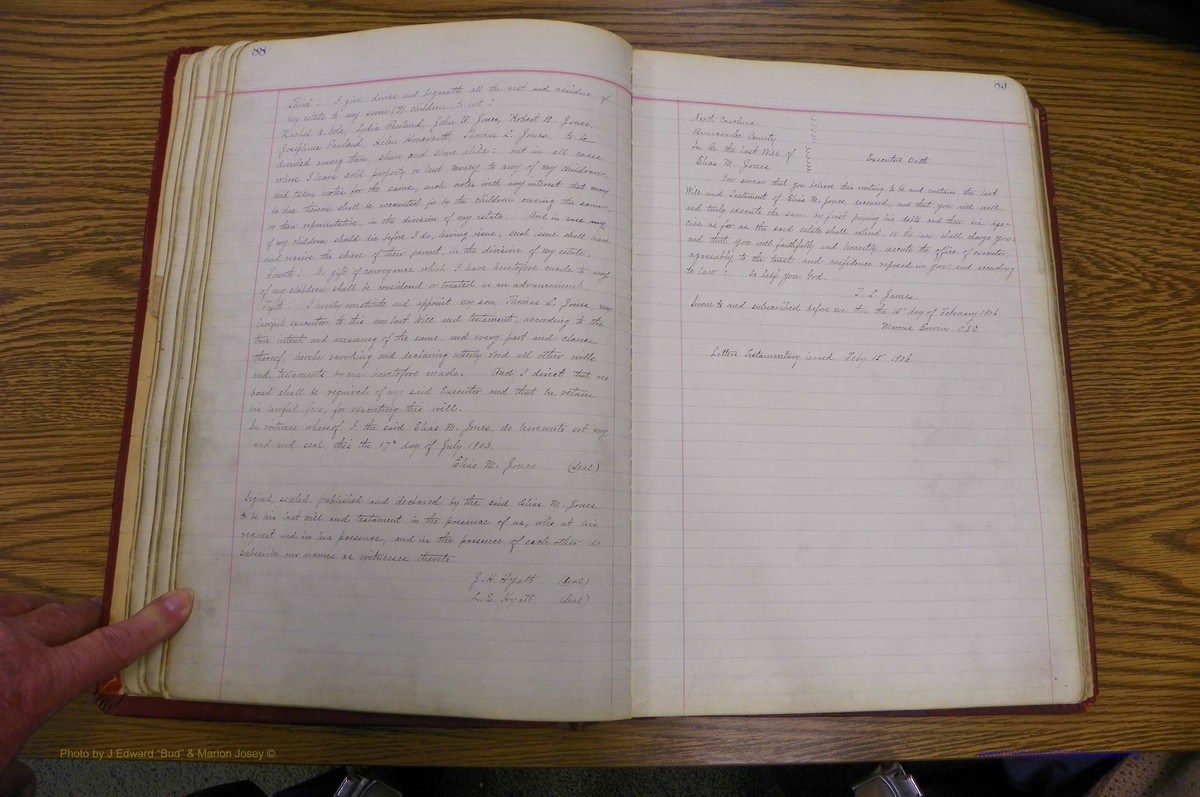 88
Third: I give, devise and bequeath all the rest and residue of
my estate to my seven (7) children, to wit:
Rachel A. Cole, Lydia Penland, John W. Jones, Robert R. Jones,
Josephine Penland, Helen Honeycutt, Thomas L. Jones, to be
divided among them, share and share alike; but in all cases
where I have sold property or lent money to any of my children,
and taken notes for the same, such notes with any interest that may
be due thereon shall be accounted for by the children owing the same,
or their representative, in the division of my estate. And in case any
of my children should die before I do, leaving issue, such issue shall have
and receive the share of their parent, in the division of my estate.
Fourth: No gift of conveyance which I have heretofore made to any
of my children shall be considered or treated as an advancement.
Fifth: I hereby constitute and appoint my son, Thomas L. Jones, my
lawful executor, to this my last Will and testament, according to the
true intent and meaning of the same, and every part and clause
thereof, hereby revoking and declaring utterly void all other wills
and testaments by me heretofore made. And I direct that no
bond shall be required of my said Executor and that he retain
his lawful fees, for executing this will.
In witness whereof, I, the said Elias M. Jones, do hereunto set my
hand and seal, this the 17th day of July 1903.
Elias M. Jones (Seal)
Signed, sealed, published and declared by the said Elias M. Jones
to be his last will and testament in the presence of us, who at his
request and in his presence, and in the presence of each other do
subscribe our names as witnesses thereto.
J. H. Hyatt (Seal)
L. E. Hyatt (Seal)
89
North Carolina
Buncombe County
In Re the Last Will of
Elias M. Jones
Executor Oath
You swear that you believe this writing to be and contain the last
Will and Testament of Elias M. Jones, deceased, and that you will well
and truly execute the same by first paying his debts and then his lega-
cies as far as the said estate shall extend, or the law shall charge you:
and that you will faithfully and honestly execute the office of executor,
agreeably to the trust and confidence reposed in you; and according
to law: So help you God.
T. L. James.
Sworn to and subscribed before me this the 15" day of February 1906
Marcus Erwin, C.S.C.
Letters Testamentary issued Feby 15 1906
Photo by J Edward "Bud" & Marion Josey ©